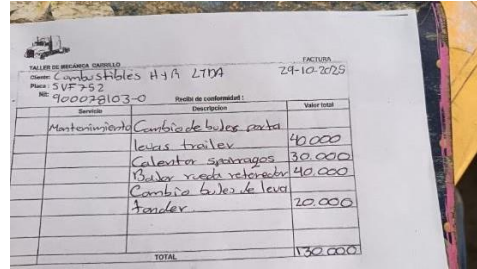 FACTURA
TALLER DE MECÁNICA CARRILLO
29-10-2025
Cliente: Combustibles H y R LTDA
Placa: SVF752
Nit: 900078103-0 Recibi de conformidad :
Servicio Descripcion Valor total
Mantenimiento Cambio de bujes porta
levas trailer 40000
Calentar sparragos 30.000
Bajar rueda 40.000
Cambio bujes de leva
20.000
TOTAL 130.000